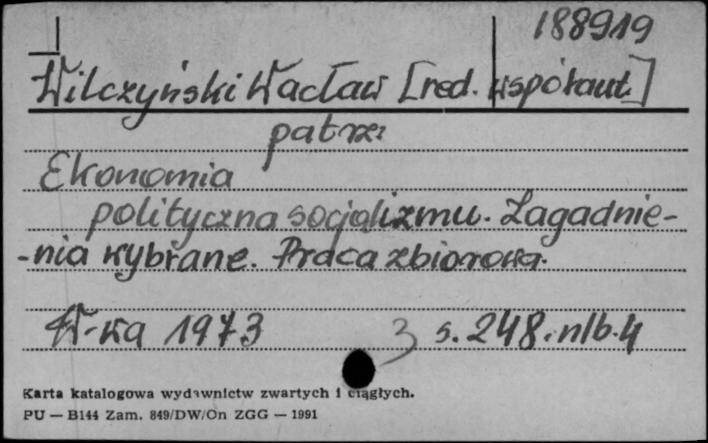 188919
Wilczyński Wacław [red. współaut.]
patrz:
Ekonomia
polityczna socjalizmu. Zagadnie-
-nia wybrane. Praca zbiorowa.
W-wa 1973 3 s. 248. nlb. 4
Karta katalogowa wydawnictw zwartych i ciągłych.
PU — B144 Zam. 849/DW/On ZGG — 1991